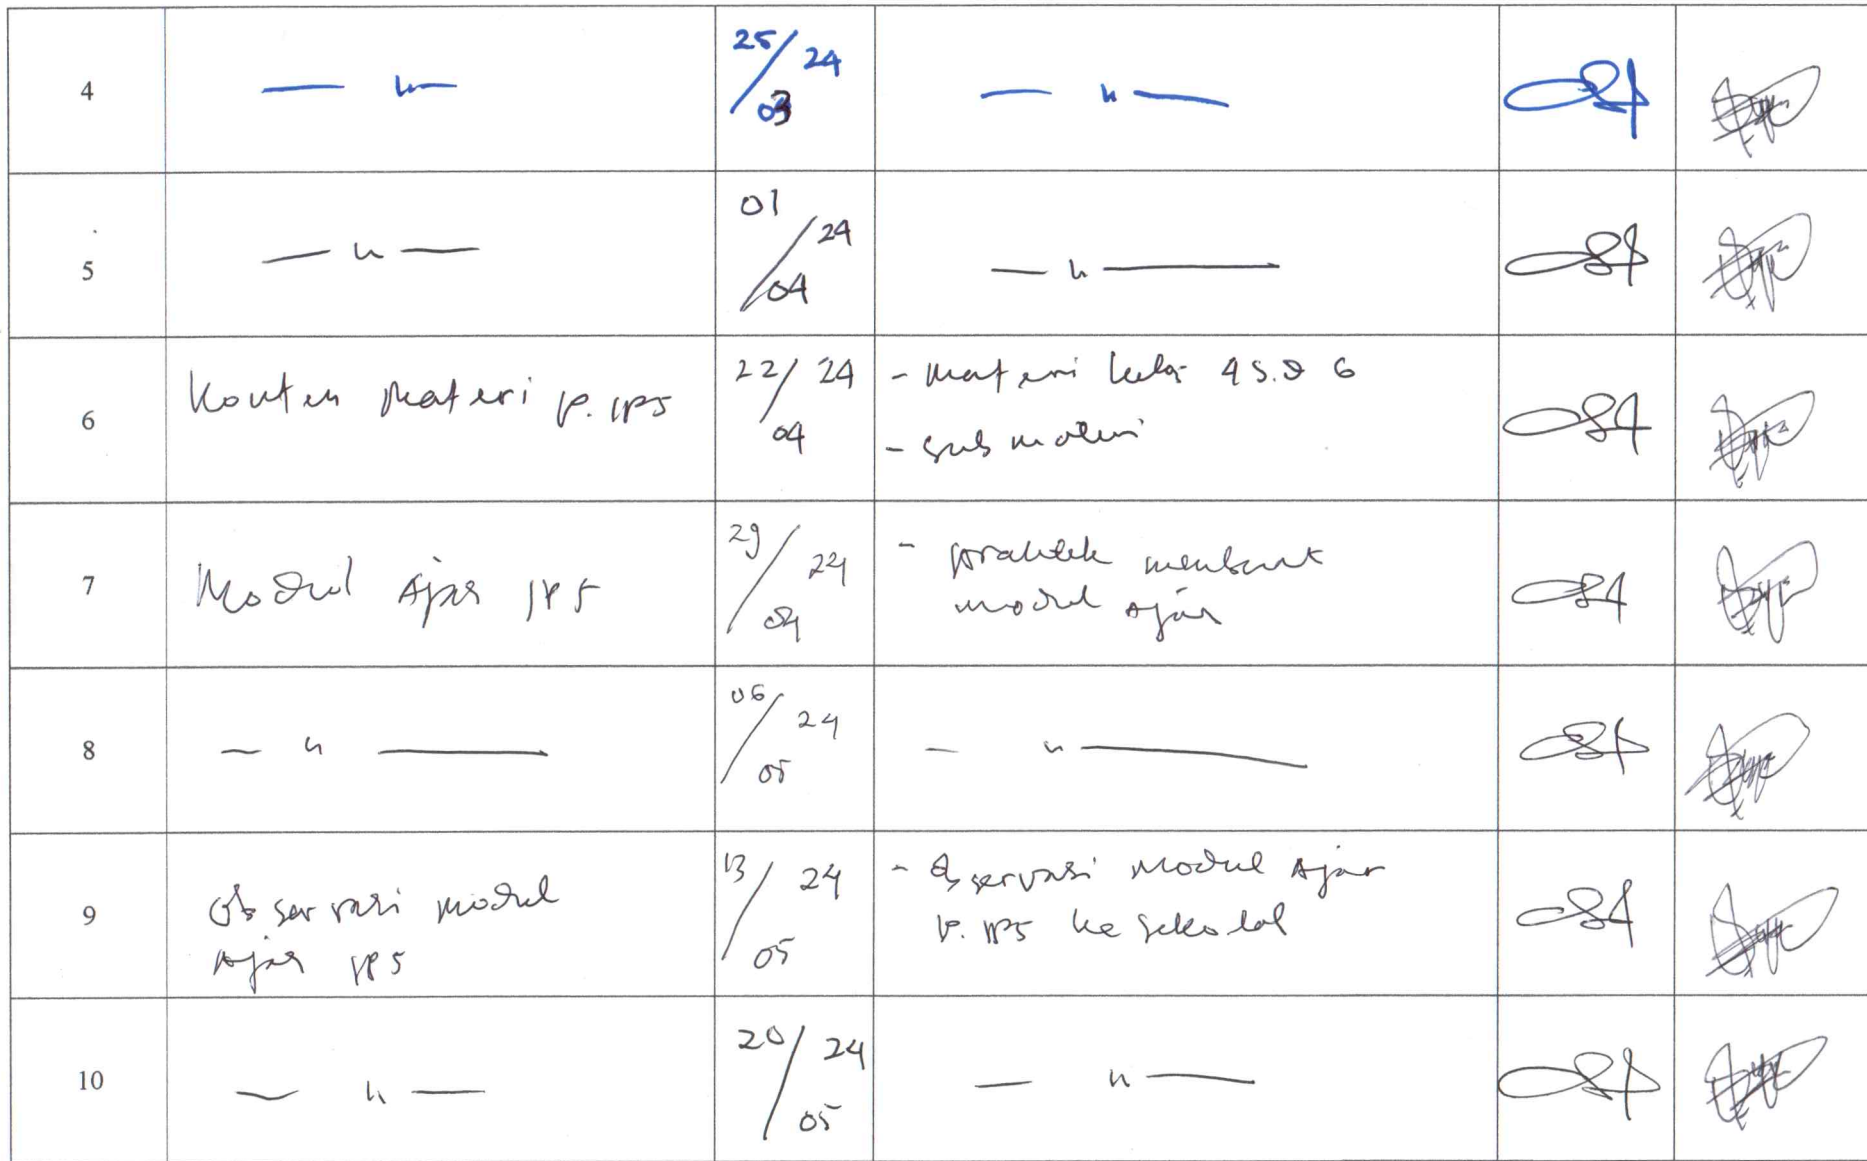 4 — " — 25/03 24 — " —
5 — " — 01/04 24 — " —
6 Konten Materi P. IPS 22/04 24 - Materi kelas 4 s.d 6
- Sub materi
7 Modul Ajar IPS 29/04 24 - praktek membuat
modul Ajar
8 — " — 06/05 24 — " —
9 Observasi modul
Ajar IPS 13/05 24 - Observasi Modul Ajar
P. IPS ke sekolah
10 — " — 20/05 24 — " —